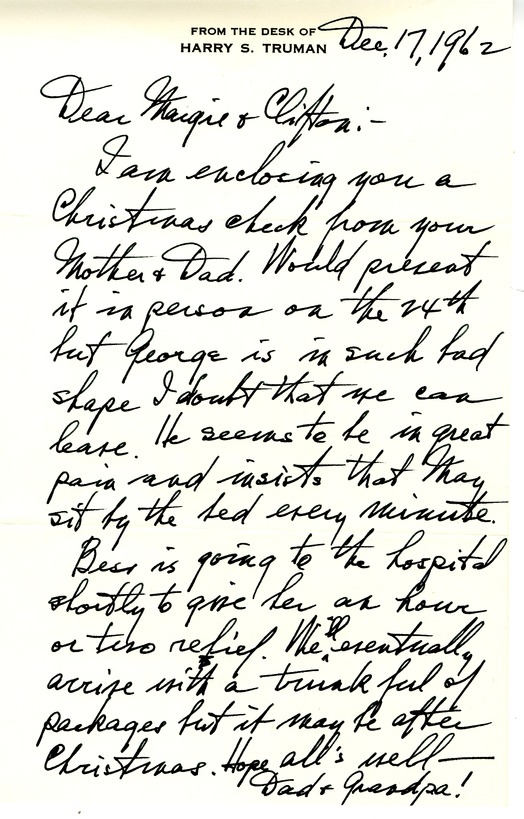 FROM THE DESK OF
HARRY S. TRUMAN Dec. 17, 1962
Dear Margie & Clifton:-
I am enclosing you a
Christmas check from your
Mother & Dad. Would present
it in person on the 24th
but George is in such bad
shape I doubt that we can
leave. He seems to be in great
pain and insists that May
sit by the bed every minute.
Bess is going to the hospital
shortly to give her an hour
or two relief. We'll eventually
arrive with a trunk ful of
packages but it may be after
Christmas. Hope all's well—
Dad & Grandpa!